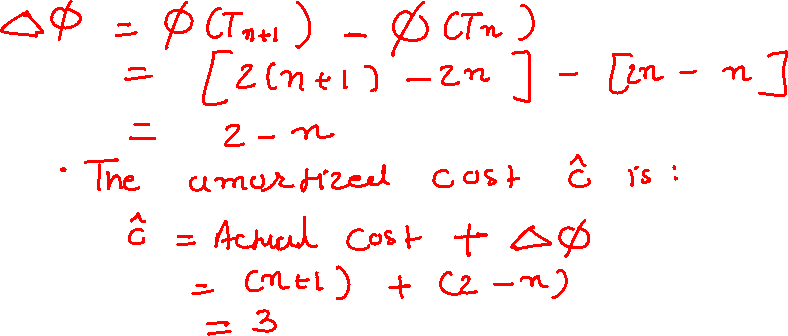 Δϕ = ϕ(Tn+1) - ϕ(Tn)
= [2(n+1) - 2n] - [2n - n]
= 2 - n
· The amortized cost ĉ is:
ĉ = Actual cost + Δϕ
= (n+1) + (2 - n)
= 3